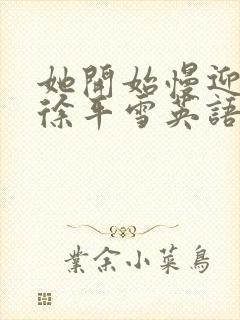 她開始慢迎
徐平雪英語
業余小菜鳥